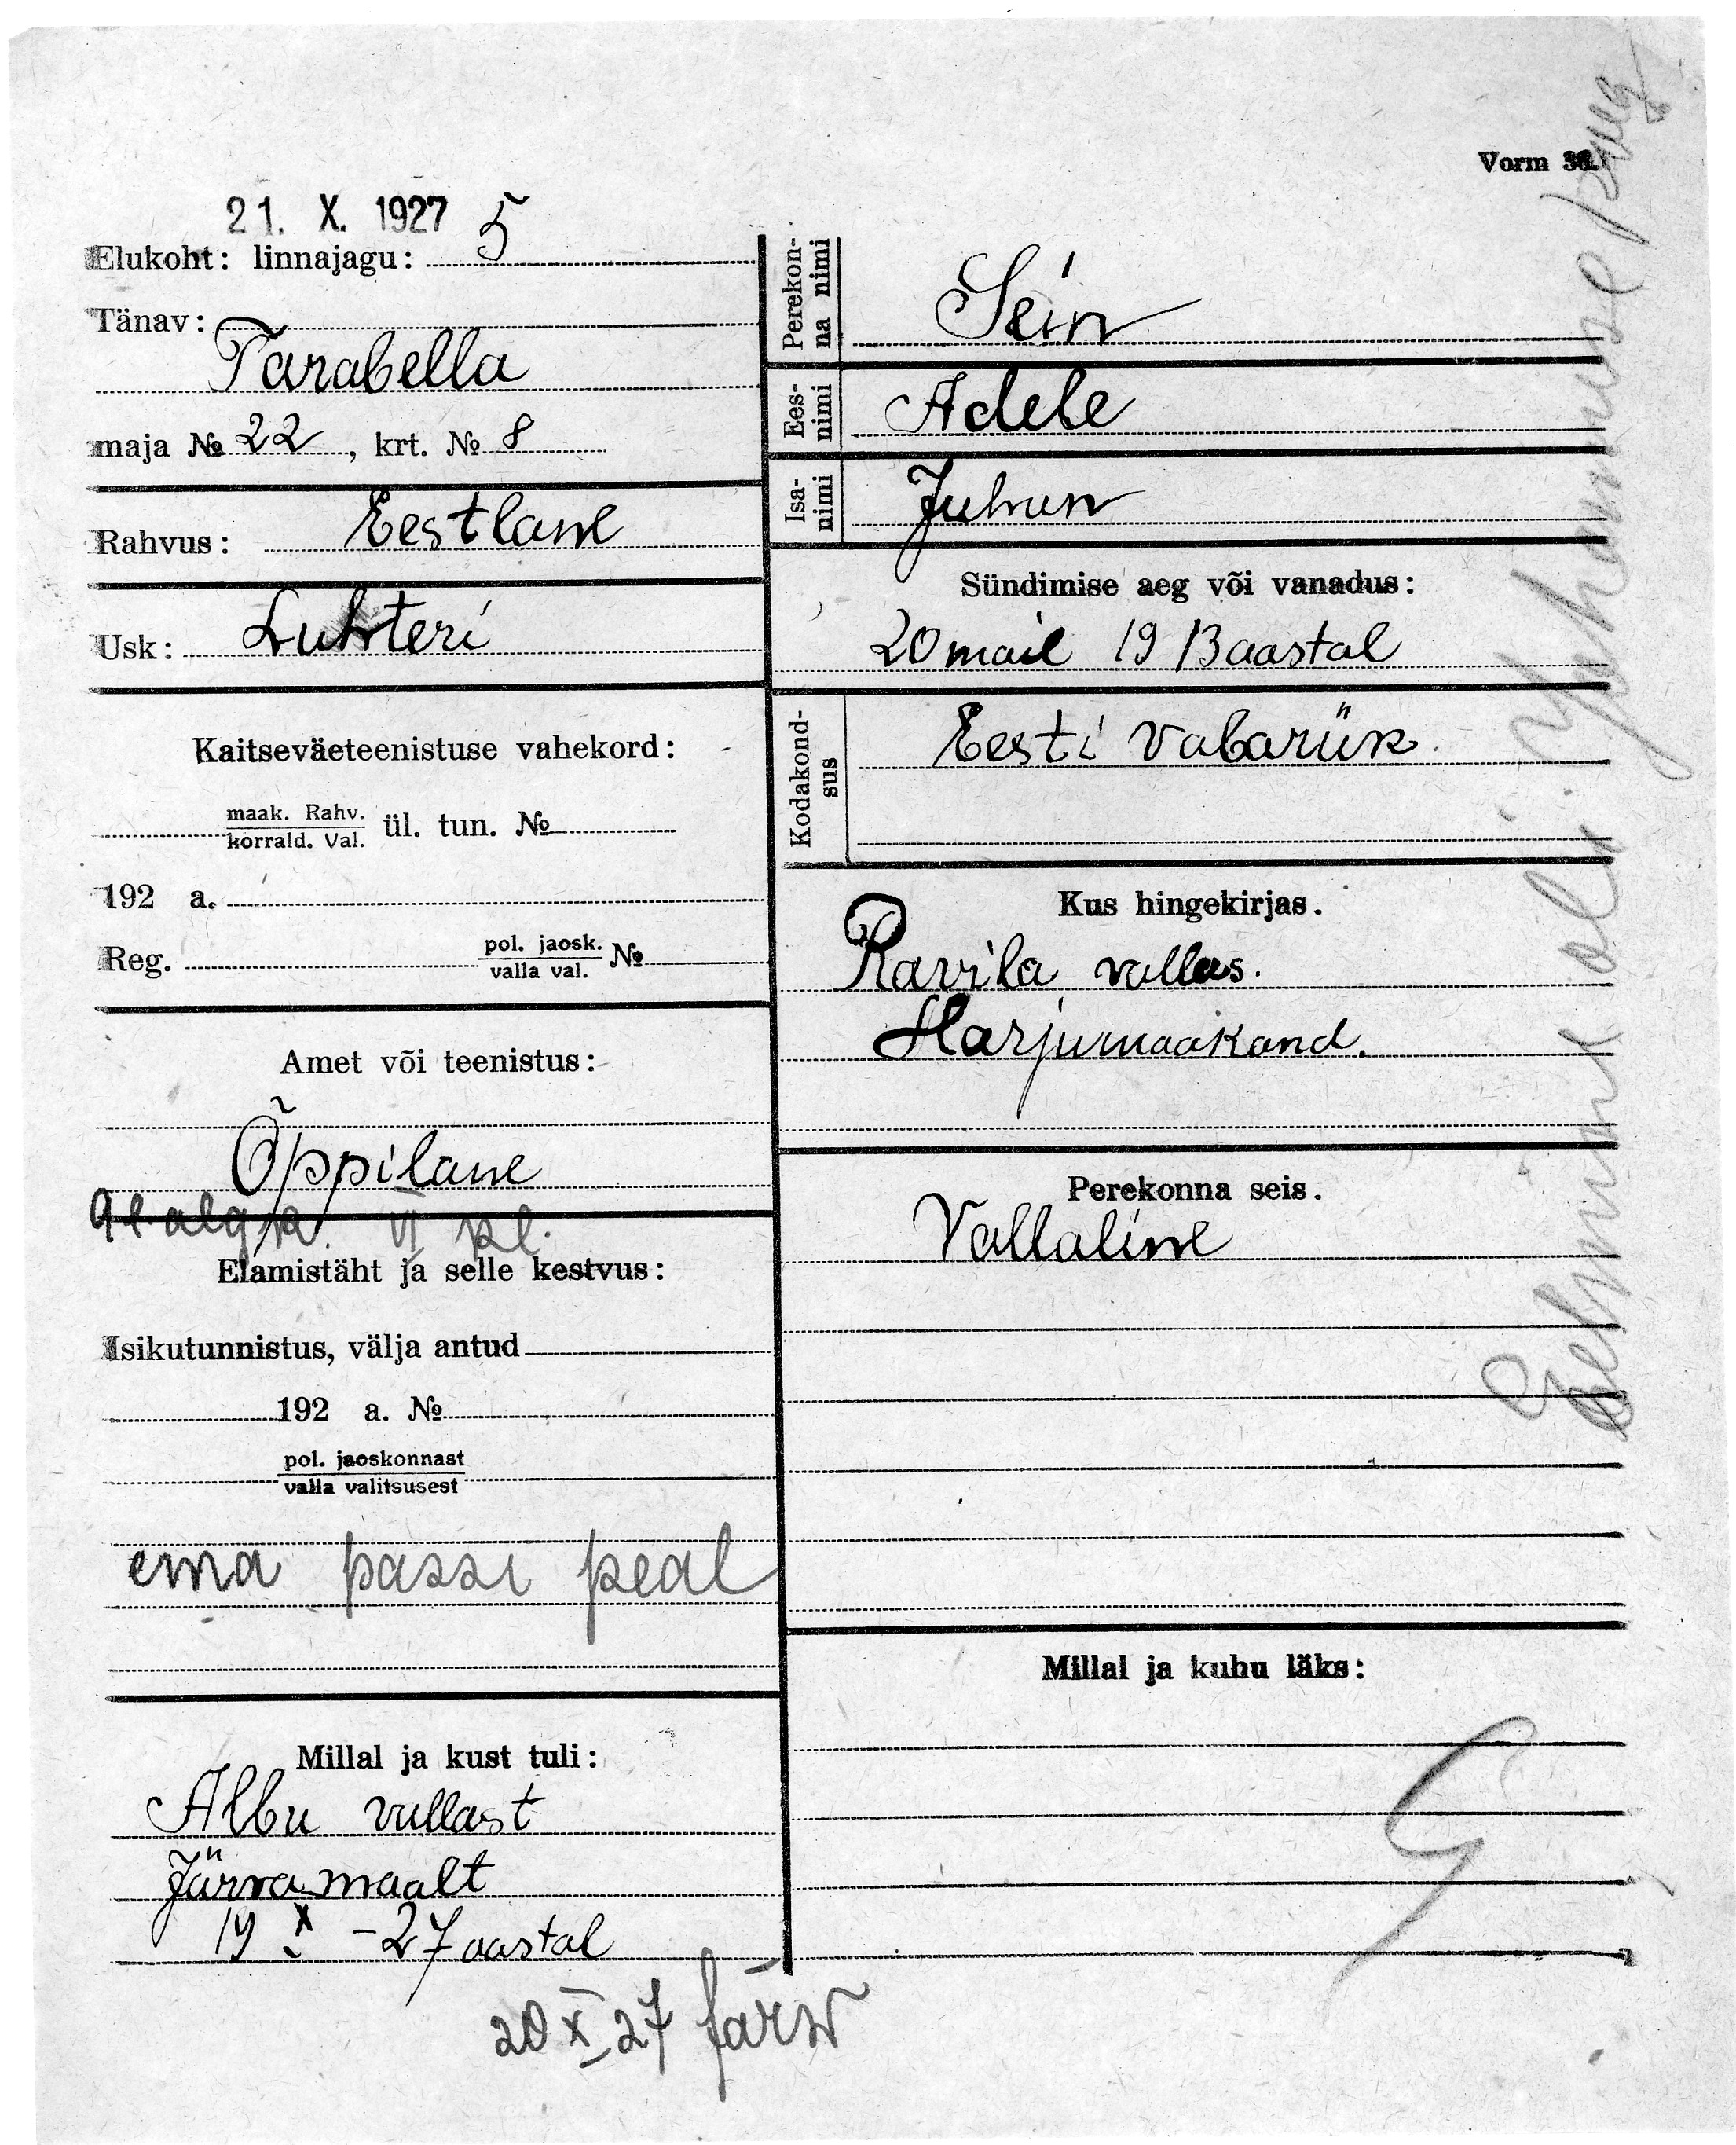 Vorm 36.
21. X. 1927
Elukoht: linnajagu: 5
Tänav:
Tarabella
maja № 22, krt. № 8
Rahvus: Eestlane
Usk: Luhteri
Kaitseväeteenistuse vahekord:
maak. Rahv.
korrald. Val. ül. tun. №
192 a.
Reg. pol. jaosk. №
valla val.
Amet või teenistus:
Õppilane
algk. VI kl.
Elamistäht ja selle kestvus:
Isikutunnistus, välja antud
192 a. №
pol. jaoskonnast
valla valitsusest
ema passi peal
Millal ja kust tuli:
Albu vallast
Järvamaalt
19 X - 27 aastal
20 X 27
Perekon-
na nimi
Sein
Ees-
nimi
Adele
Isa-
nimi
Juhan
Sündimise aeg või vanadus:
20 mail 1913 aastal
Kodakond-
sus
Eesti vabariik
Kus hingekirjas.
Ravila vallas.
Harjumaakond.
Perekonna seis.
Vallaline
Millal ja kuhu läks:
Eelmine oli